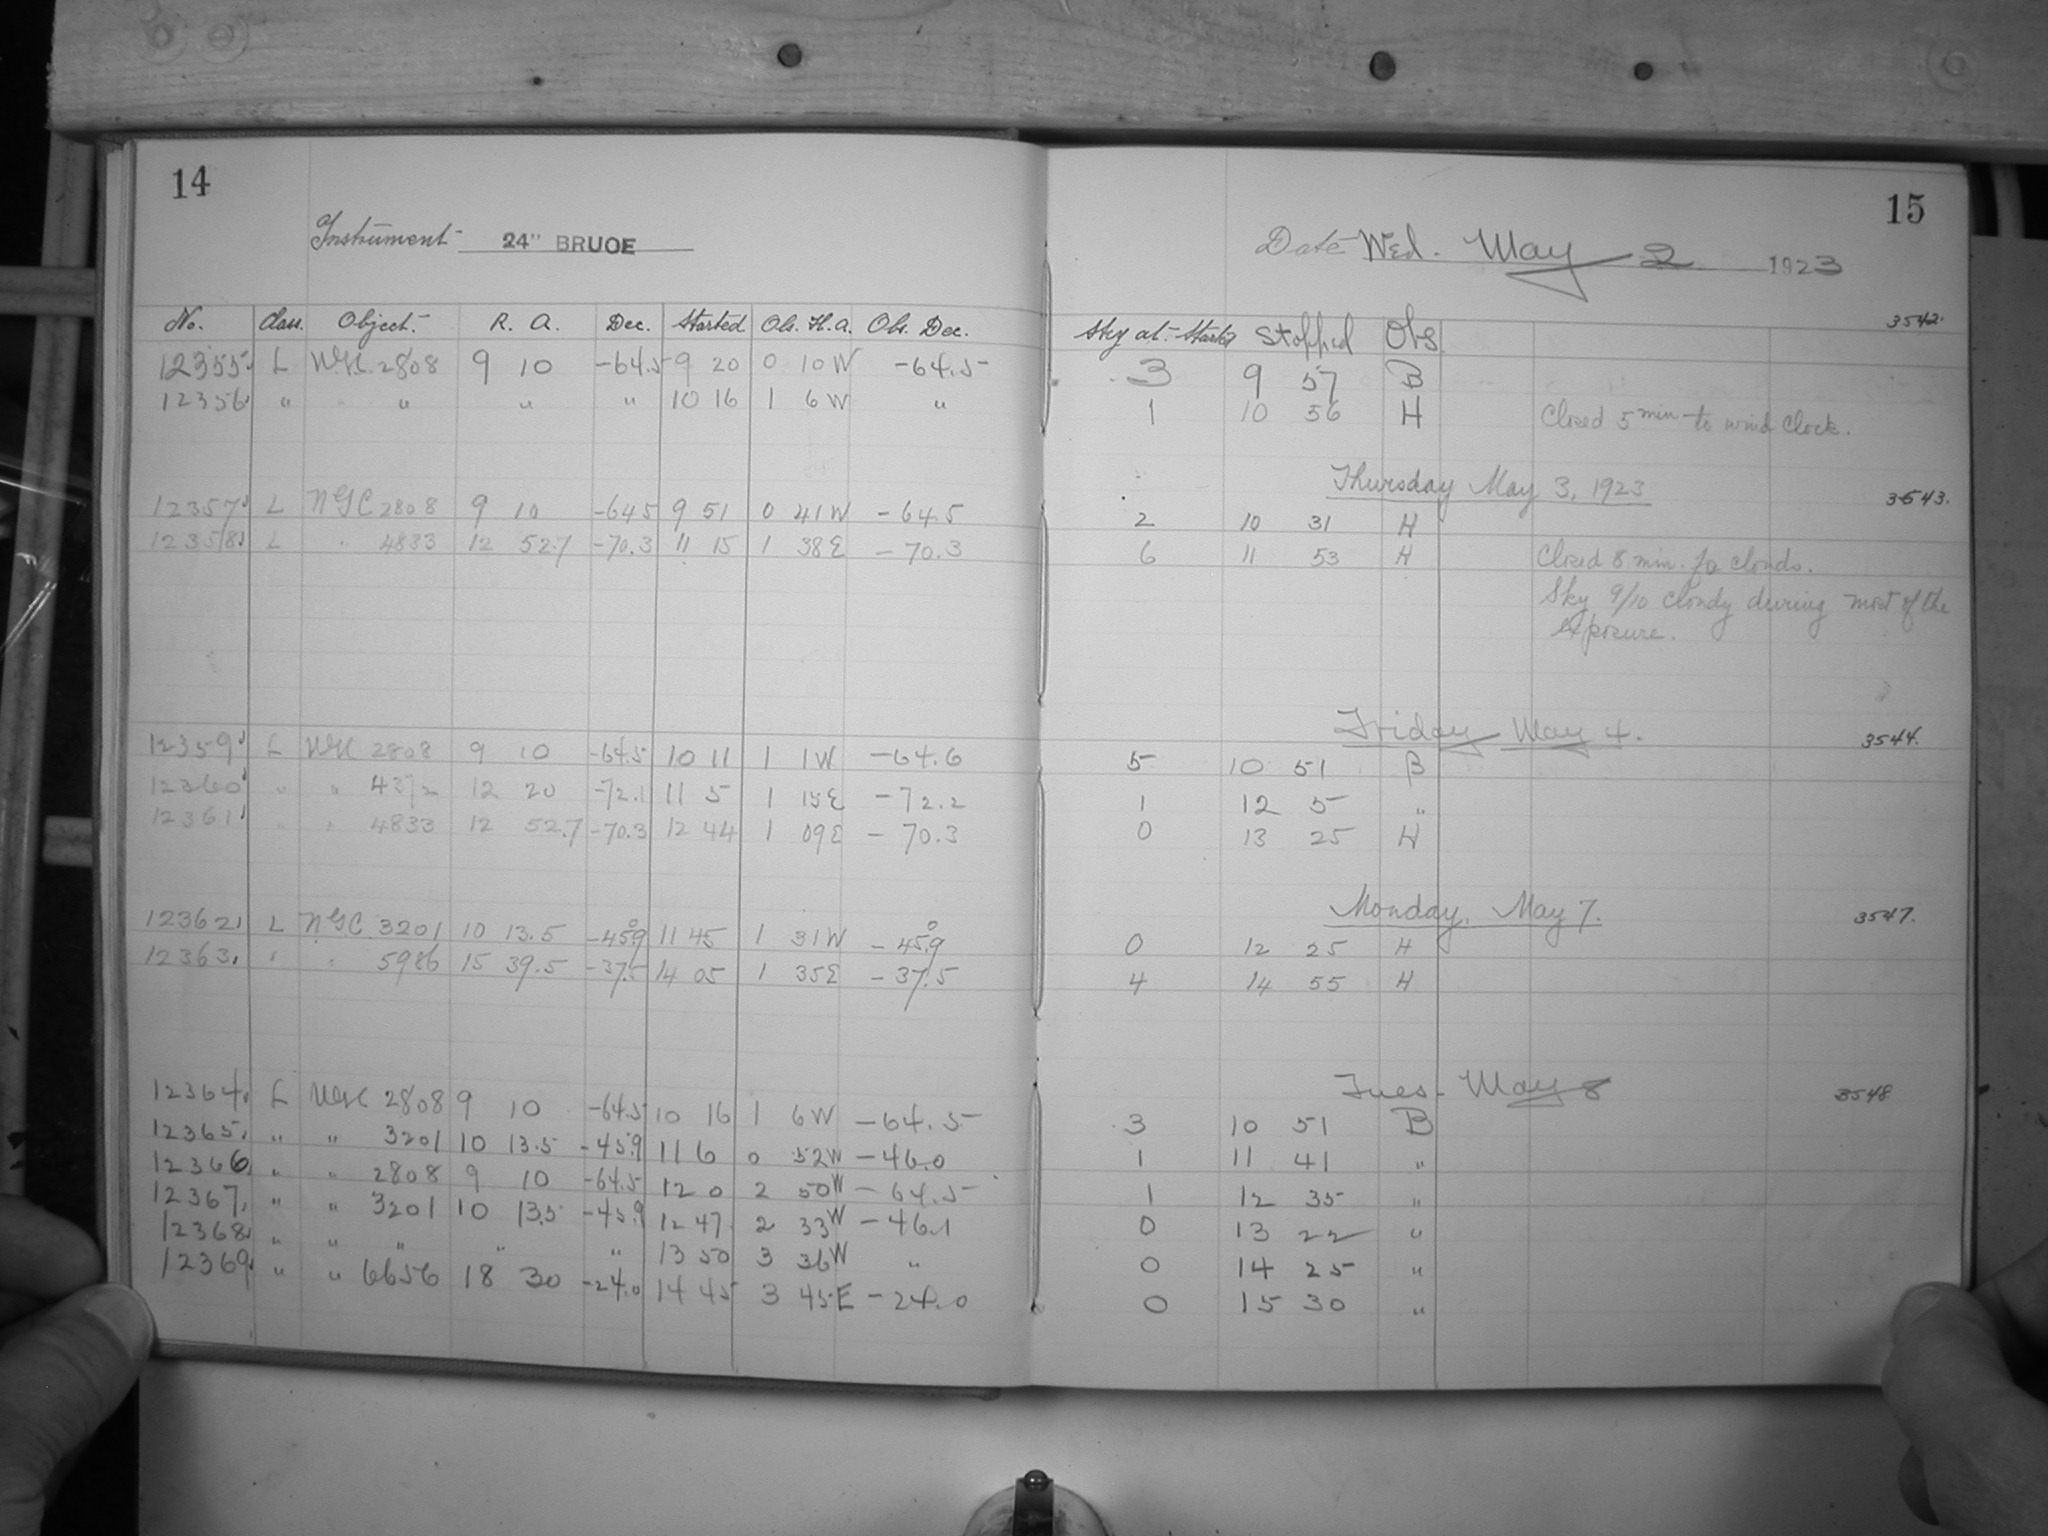 14
Instrument 24" BRUOE
No. Class. Object. R. A. Dec. Started Obs. H.A. Obs. Dec.
12355 L N.G.C. 2808 9 10 -64.5 9 20 0 10 W -64.5
12356 " " " " " 10 16 1 6 W "
12357 L NGC 2808 9 10 -64.5 9 51 0 41 W -64.5
12358 L " 4833 12 52.7 -70.3 11 15 1 38 E -70.3
12359 L NGC 2808 9 10 -64.5 10 11 1 1 W -64.6
12360 " " 4372 12 20 -72.1 11 5 1 15 E -72.2
12361 " " 4833 12 52.7 -70.3 12 44 1 09 E -70.3
12362 L NGC 3201 10 13.5 -45.9 11 45 1 31 W -45.9
12363 " " 5986 15 39.5 -37.5 14 05 1 35 E -37.5
12364 L NGC 2808 9 10 -64.5 10 16 1 6 W -64.5
12365 " " 3201 10 13.5 -45.9 11 6 0 52 W -46.0
12366 " " 2808 9 10 -64.5 12 0 2 50 W -64.5
12367 " " 3201 10 13.5 -45.9 12 47 2 33 W -46.1
12368 " " " " " 13 50 3 36 W "
12369 " " 6656 18 30 -24.0 14 45 3 45 E -24.0
15
Date Wed. May 2 1923
3542.
Sky at Start Stopped Obs
3 9 57 B
1 10 56 H Closed 5 min to wind clock.
Thursday May 3, 1923 3543.
2 10 31 H
6 11 53 H Closed 8 min. for clouds.
Sky 9/10 cloudy during most of the
exposure.
Friday May 4. 3544.
5 10 51 B
1 12 5 "
0 13 25 H
Monday, May 7. 3547.
0 12 25 H
4 14 55 H
Tues. May 8 3548
3 10 51 B
1 11 41 "
1 12 35 "
0 13 22 "
0 14 25 "
0 15 30 "